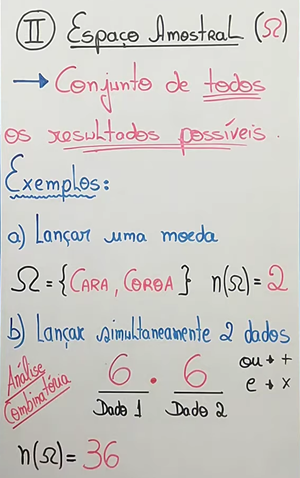 II Espaço Amostral (Ω)
→ Conjunto de todos
os resultados possíveis.
Exemplos:
a) Lançar uma moeda
Ω = {CARA, COROA} n(Ω) = 2
b) Lançar simultaneamente 2 dados
Análise
Combinatória
6 . 6
Dado 1 Dado 2
ou → +
e → x
n(Ω) = 36